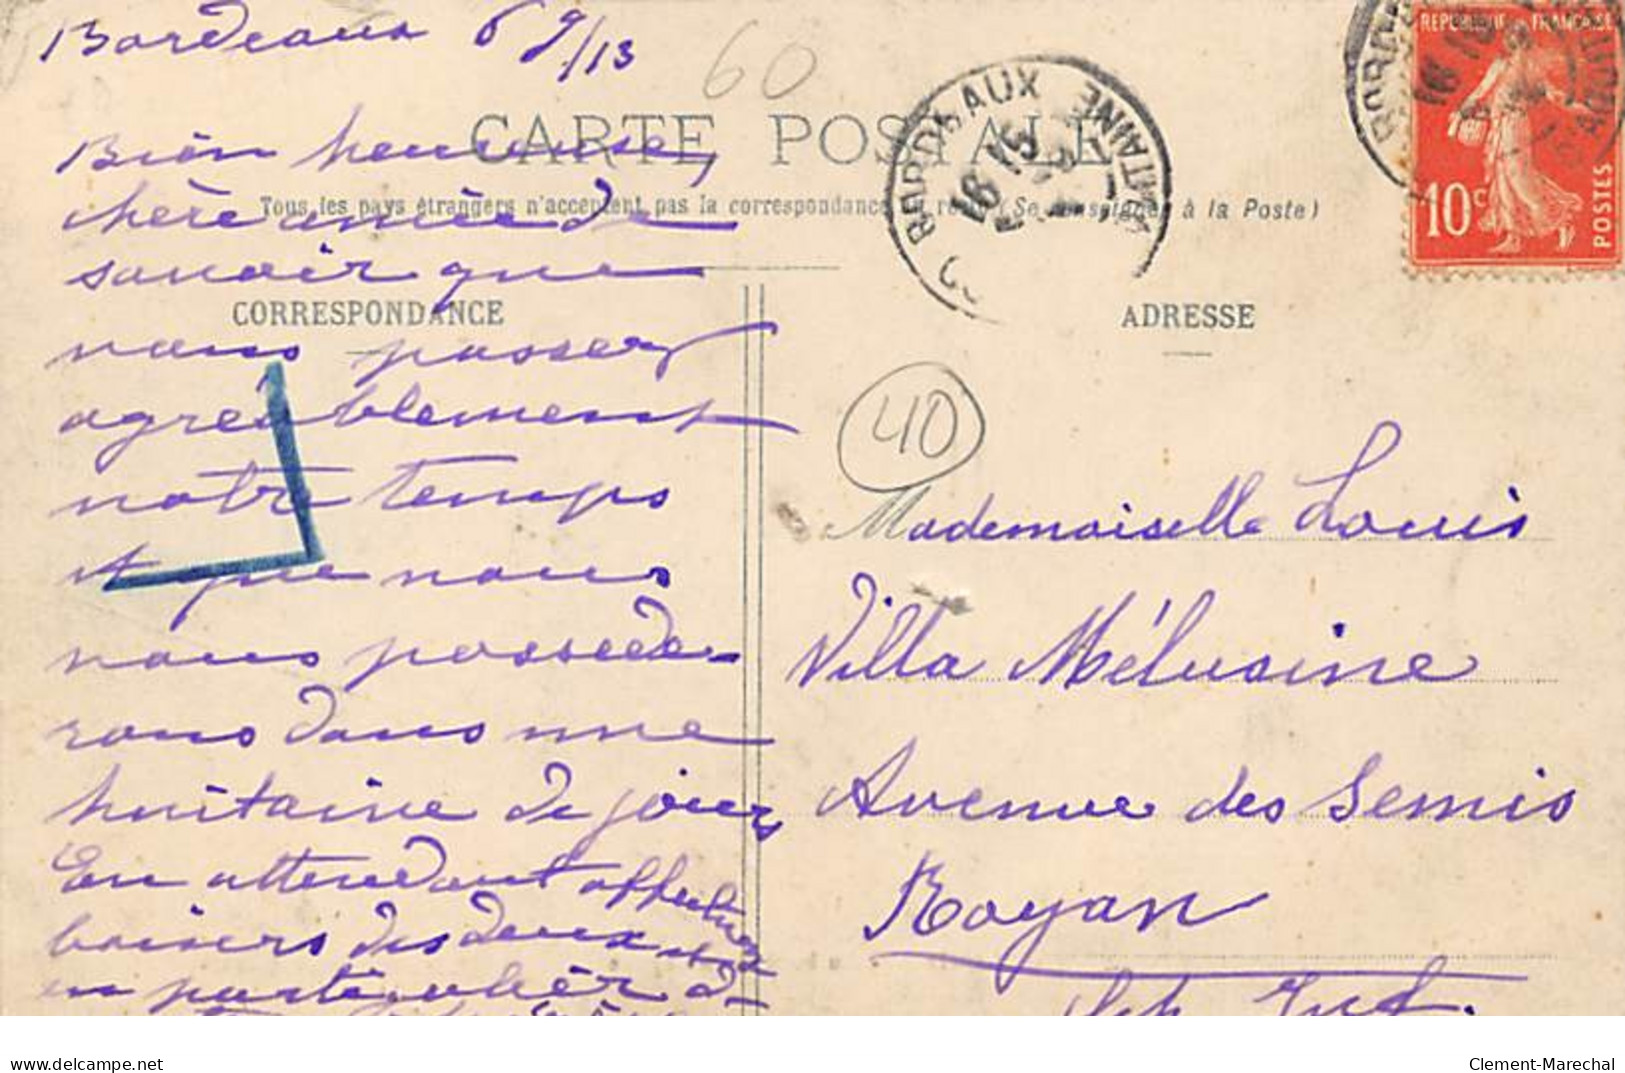 Bordeaux 6 9/13
60
CARTE POSTALE
Tous les pays étrangers n'acceptent pas la correspondance au recto (Se renseigner à la Poste)
BORDEAUX
AQUITAINE
16 15
BORDEAUX
AQUITAINE
REPUBLIQUE FRANÇAISE
10c
POSTES
CORRESPONDANCE
Bien heureuse,
chère amie de
savoir que
vous passez
agréablement
votre temps
et que nous
vous posséde-
rons dans une
huitaine de jours
En attendant affectueux
baisers des deux et
en particulier d
ADRESSE
40
Mademoiselle Louis
Villa Mélusine
Avenue des Semis
Royan
Ch Inf.
www.delcampe.net
Clement-Marechal